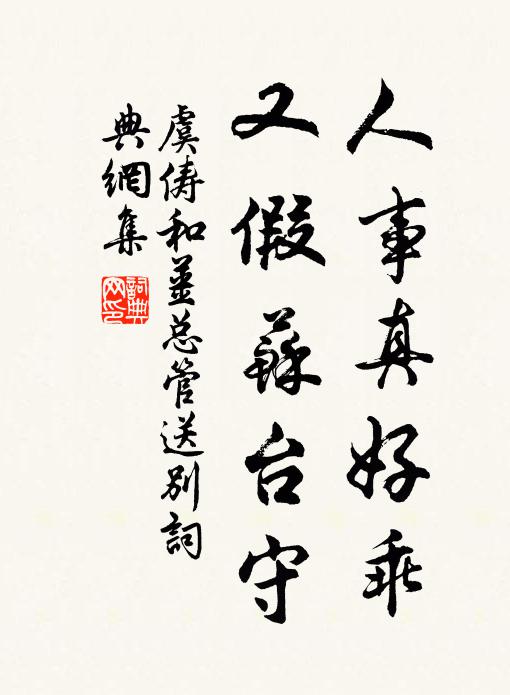 人事真好乖
又假蘇台守
虞俦和姜总管送别詞
典網集
詞典网印